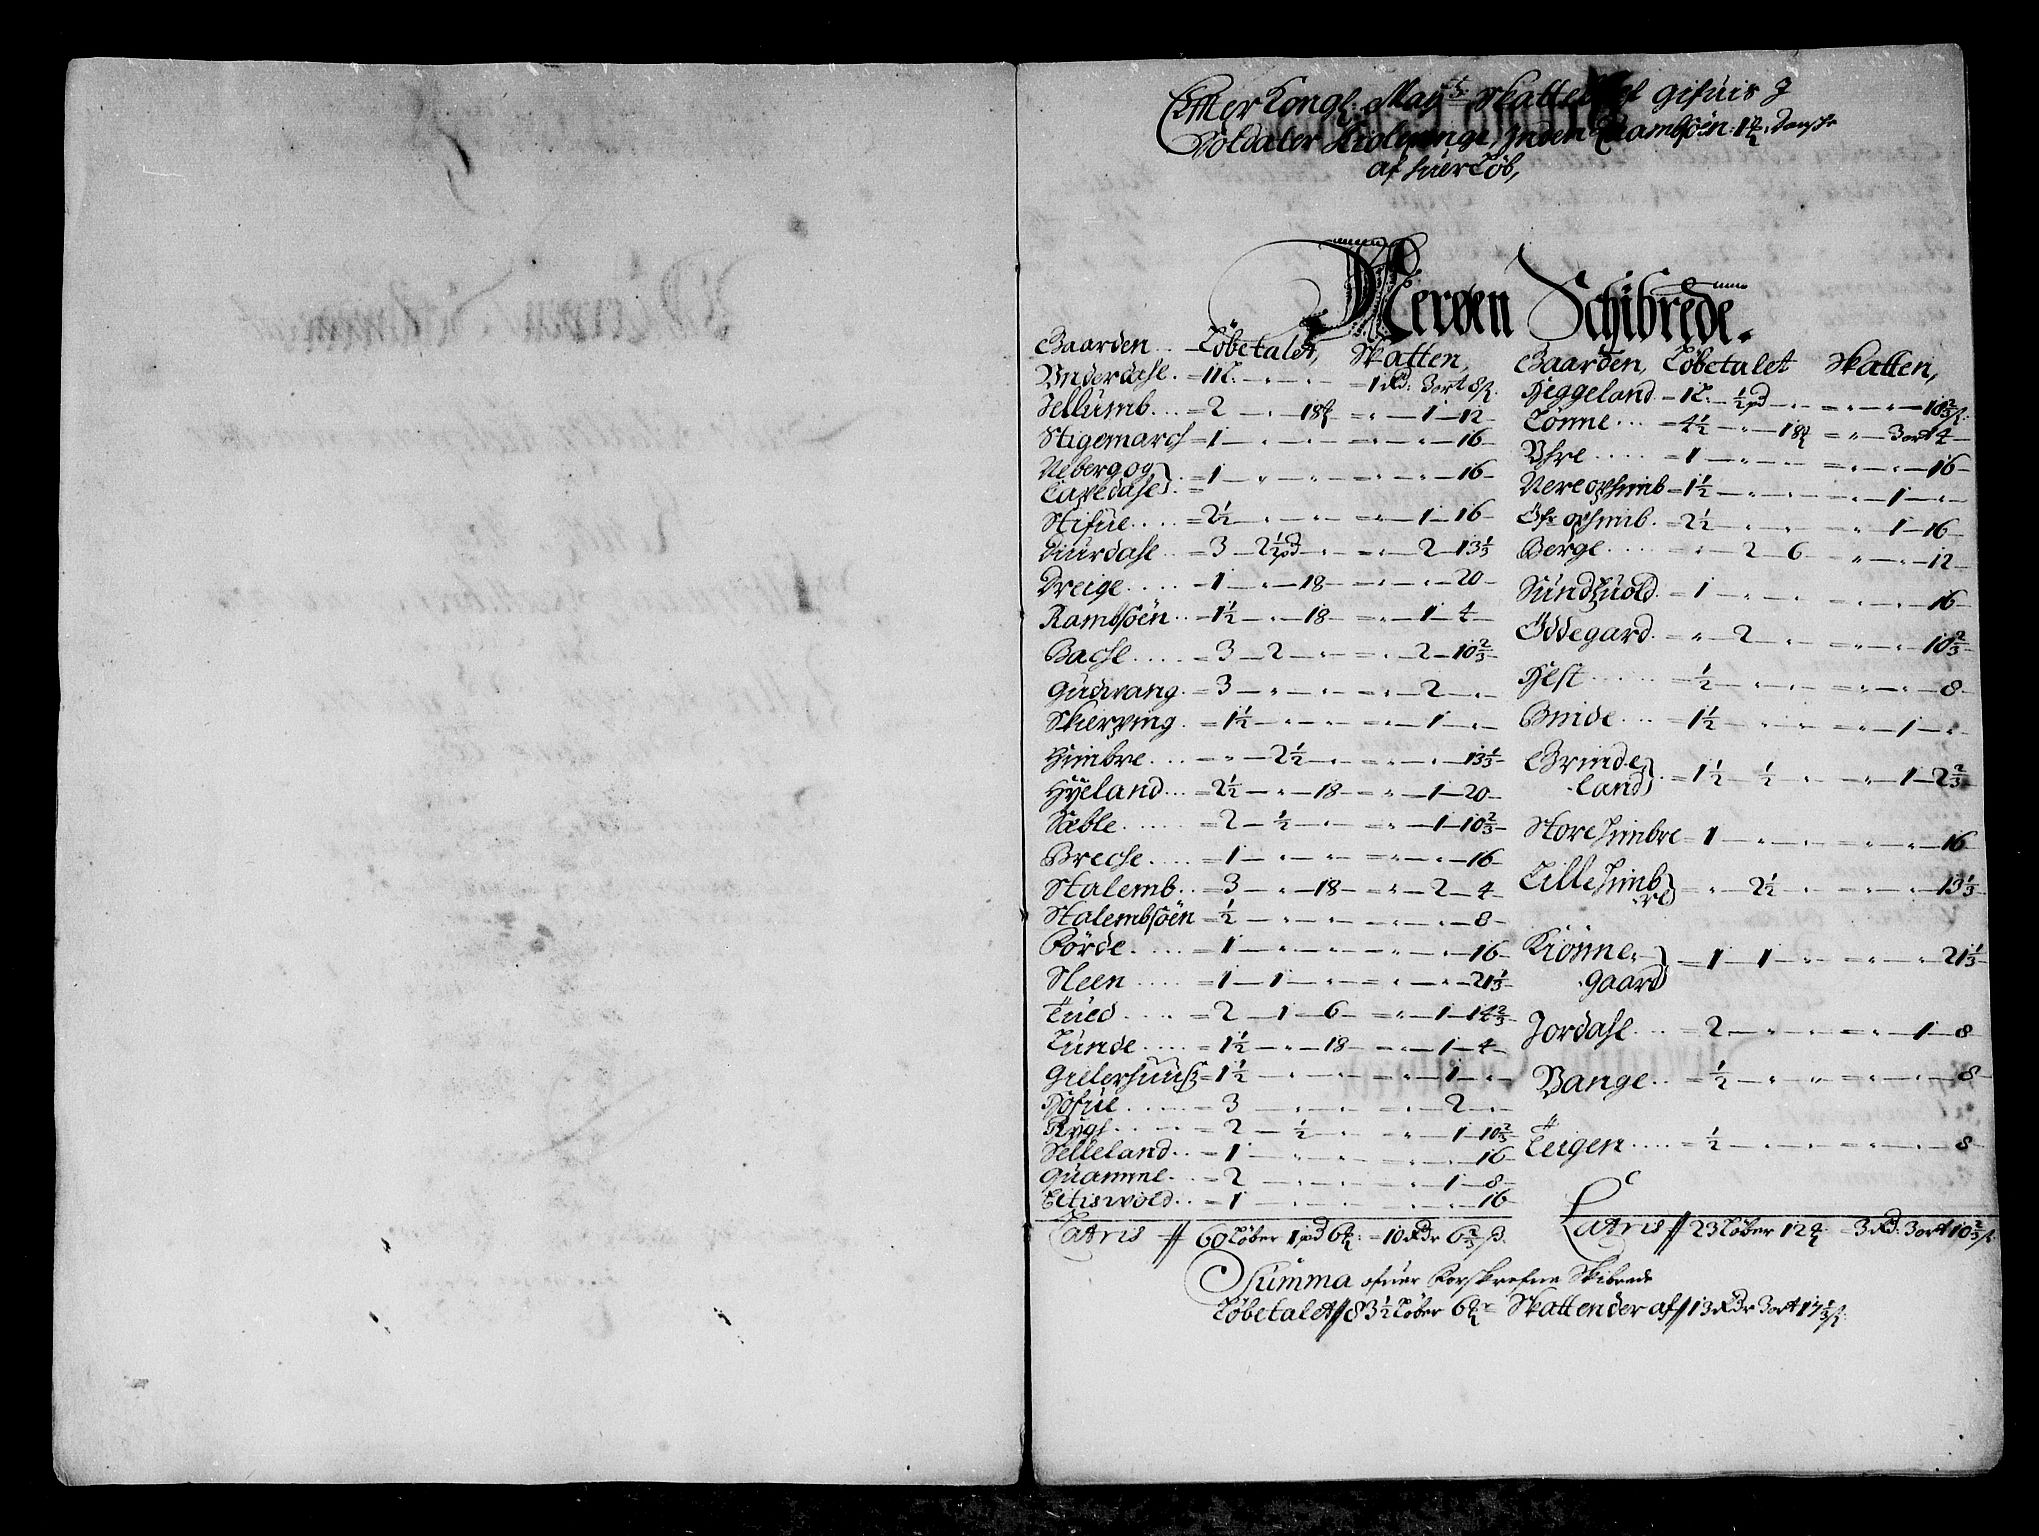 Efter Kongl: May<sup>ts</sup> Skattebref gifuis J
Söldaler Hiolpenge, Inden Rambsöen
af huer Löb,
Nerøen Schibrede.
Gaarden Löbetalet, Skatten,
Vnderdahl. 1 L. 1 Rd: 3 ort 8 ß.
Jellumb 2 " 18 " 1 12
Stigemarch 1 " " " " 16
Neberg og
Lavedahl 1 " " " " 16
Stifue 2½ " " " 1 16
Diurdahl 3 2½ pd " " 2 13⅓
Dreige 1 " 18 " " 20
Rambsöen 1½ " 18 " 1 4
Bache 3 2 " " 2 10⅔
Gudvang 3 " " " 2 "
Skierping 1½ " " " 1 "
Himbre " 2½ " " " 13⅓
Hÿeland 2½ " 18 " 1 20
Næble 2 ½ " " 1 10⅔
Breche 1 " " " " 16
Stalemb 3 " 18 " 2 4
Stalembsöen ½ " " " " 8
Förde 1 " " " " 16
Steen 1 1 " " " 21⅓
Tued 2 1 6 " 1 14⅔
Lunde 1½ " 18 " 1 4
Gielerhuuß 1½ " " " 1 "
Hofue 3 " " " 2 "
Rygh 2 ½ " " 1 10⅔
Selleland 1 " " " " 16
Quamme 2 " " " 1 8
Eetiswold 1 " " " " 16
Latris 60 Löber 1 pd 6 = 10 Rdr 6⅔ ß.
Gaarden, Löbetalet Skatten,
Heggeland 1 L. ½ pd " " " 18⅔ ß.
Lönne 4½ " 18 " 3 ort 14
Vhre 1 " " " " 16
Nereopheimb 1½ " " " 1 "
Öfr opheimb 2½ " " " 1 16
Berge " 2 6 " " 12
Sundhuold 1 " " " " 16
Ödegard " 2 " " " 10⅔
Hest ½ " " " " 8
Bnide 1½ " " " 1 "
Grinde
land 1½ ½ " " 1 2⅔
Storehimbre 1 " " " " 16
Lillehimb
re " 2½ " " " 13⅓
Kiönne
gaard 1 1 " " " 21⅓
Jordahl 2 " " " 1 8
Vange ½ " " " " 8
Teigen ½ " " " " 8
Latris 23 Löber 12 = 3 Rd. 3 ort 10⅔ ß
Summa ofuer Forskrefne Skibrede
Löbetalet 83½ Löber 6 Skattender af 13 Rdr 3 ort 17⅓ ß.